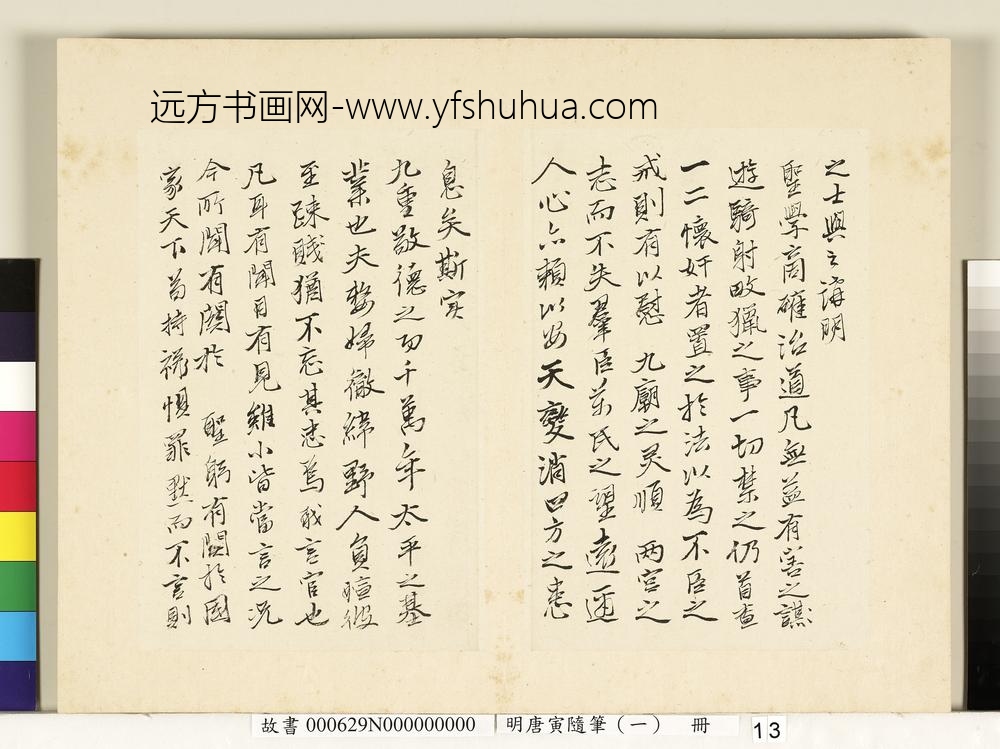 远方书画网-www.yfshuhua.com
之士與之講明
聖學商確治道凡無益有害之謀
遊騎射畋獵之事一切禁之仍首查
一二懷奸者置之於法以為不臣之
戒則有以慰 九廟之灵順 两宫之
志而不失羣臣萬民之望遠迩
人心亦賴以安天變消四方之患
息矣斯实
九重敬德之功千萬年太平之基
業也夫嫠婦徹緯野人負暄彼
至疎賤猶不忘其忠焉我言官也
凡耳有聞目有見雖小皆當言之况
今所聞有關於 聖躬有關於國
家天下苟持祿惧罪默而不言則
故書 000629N000000000 明唐寅隨筆(一) 冊 13